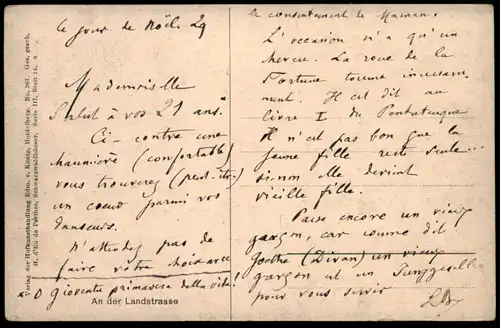 le jour de Noël. 29
Mademoiselle
Salut à vos 21 ans.
Ci-contre une
chaumière (confortable)
vous trouverez (peut-être)
un cœur parmi vos
danseurs.
N'attendez pas de
faire votre
* O Gioventu primavera della vita!
An der Landstrasse
le consentement de Maman.
L'occasion n'a qu'un
cheveu. La roue de la
Fortune tourne incessam-
ment. Il est dit au
livre I du Pentateuque
Il n'est pas bon que la
jeune fille reste seule...
sinon elle devient
vieille fille.
Passe encore un vieux
garçon, car comme dit
Goethe (Divan) un vieux
garçon est un Junggeselle
pour vous servir
Verlag der Hofkunsthandlung Edm. v. König, Heidelberg. No. 367. Ges. gesch.
H. d'Eo de Perthes, Schwarzwaldhäuser. Serie III, Blatt 14.